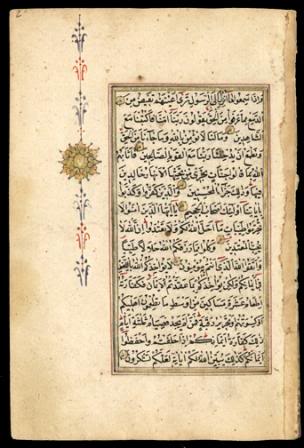 وَاِذَا سَمِعُوا مَا اُنْزِلَ اِلَى الرَّسُولِ تَرٰى اَعْيُنَهُمْ تَفِيضُ مِنَ
الدَّمْعِ مِمَّا عَرَفُوا مِنَ الْحَقِّ يَقُولُونَ رَبَّنَا اٰمَنَّا فَاكْتُبْنَا مَعَ
الشَّاهِدِينَ وَمَا لَنَا لَا نُؤْمِنُ بِاللّٰهِ وَمَا جَاءَنَا مِنَ الْحَقِّ
وَنَطْمَعُ اَنْ يُدْخِلَنَا رَبُّنَا مَعَ الْقَوْمِ الصَّالِحِينَ فَاَثَابَهُمُ
اللّٰهُ بِمَا قَالُوا جَنَّاتٍ تَجْرِي مِنْ تَحْتِهَا الْاَنْهَارُ خَالِدِينَ
فِيهَا وَذٰلِكَ جَزَاءُ الْمُحْسِنِينَ وَالَّذِينَ كَفَرُوا وَكَذَّبُوا
بِاٰيَاتِنَا اُولٰئِكَ اَصْحَابُ الْجَحِيمِ يَا اَيُّهَا الَّذِينَ اٰمَنُوا لَا
تُحَرِّمُوا طَيِّبَاتِ مَا اَحَلَّ اللّٰهُ لَكُمْ وَلَا تَعْتَدُوا اِنَّ اللّٰهَ لَا
يُحِبُّ الْمُعْتَدِينَ وَكُلُوا مِمَّا رَزَقَكُمُ اللّٰهُ حَلَالًا طَيِّبًا
وَاتَّقُوا اللّٰهَ الَّذِي اَنْتُمْ بِهِ مُؤْمِنُونَ لَا يُؤَاخِذُكُمُ اللّٰهُ بِاللَّغْوِ
فِي اَيْمَانِكُمْ وَلٰكِنْ يُؤَاخِذُكُمْ بِمَا عَقَّدْتُمُ الْاَيْمَانَ فَكَفَّارَتُهُ
اِطْعَامُ عَشَرَةِ مَسَاكِينَ مِنْ اَوْسَطِ مَا تُطْعِمُونَ اَهْلِيكُمْ
اَوْ كِسْوَتُهُمْ اَوْ تَحْرِيرُ رَقَبَةٍ فَمَنْ لَمْ يَجِدْ فَصِيَامُ ثَلٰثَةِ اَيَّامٍ
ذٰلِكَ كَفَّارَةُ اَيْمَانِكُمْ اِذَا حَلَفْتُمْ وَاحْفَظُوا
اَيْمَانَكُمْ كَذٰلِكَ يُبَيِّنُ اللّٰهُ لَكُمْ اٰيَاتِهِ لَعَلَّكُمْ تَشْكُرُونَ